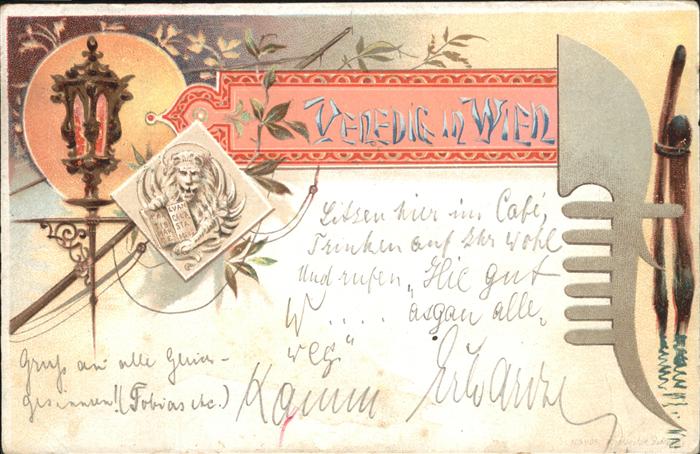 VENEDIG IN WIEN
Sitzen hier im Café,
Trinken auf Ihr Wohl
Und rufen „Hie gut
W.... alle-
weg"
Gruß an alle
gesinnten! (Tobias etc.)
Kamm